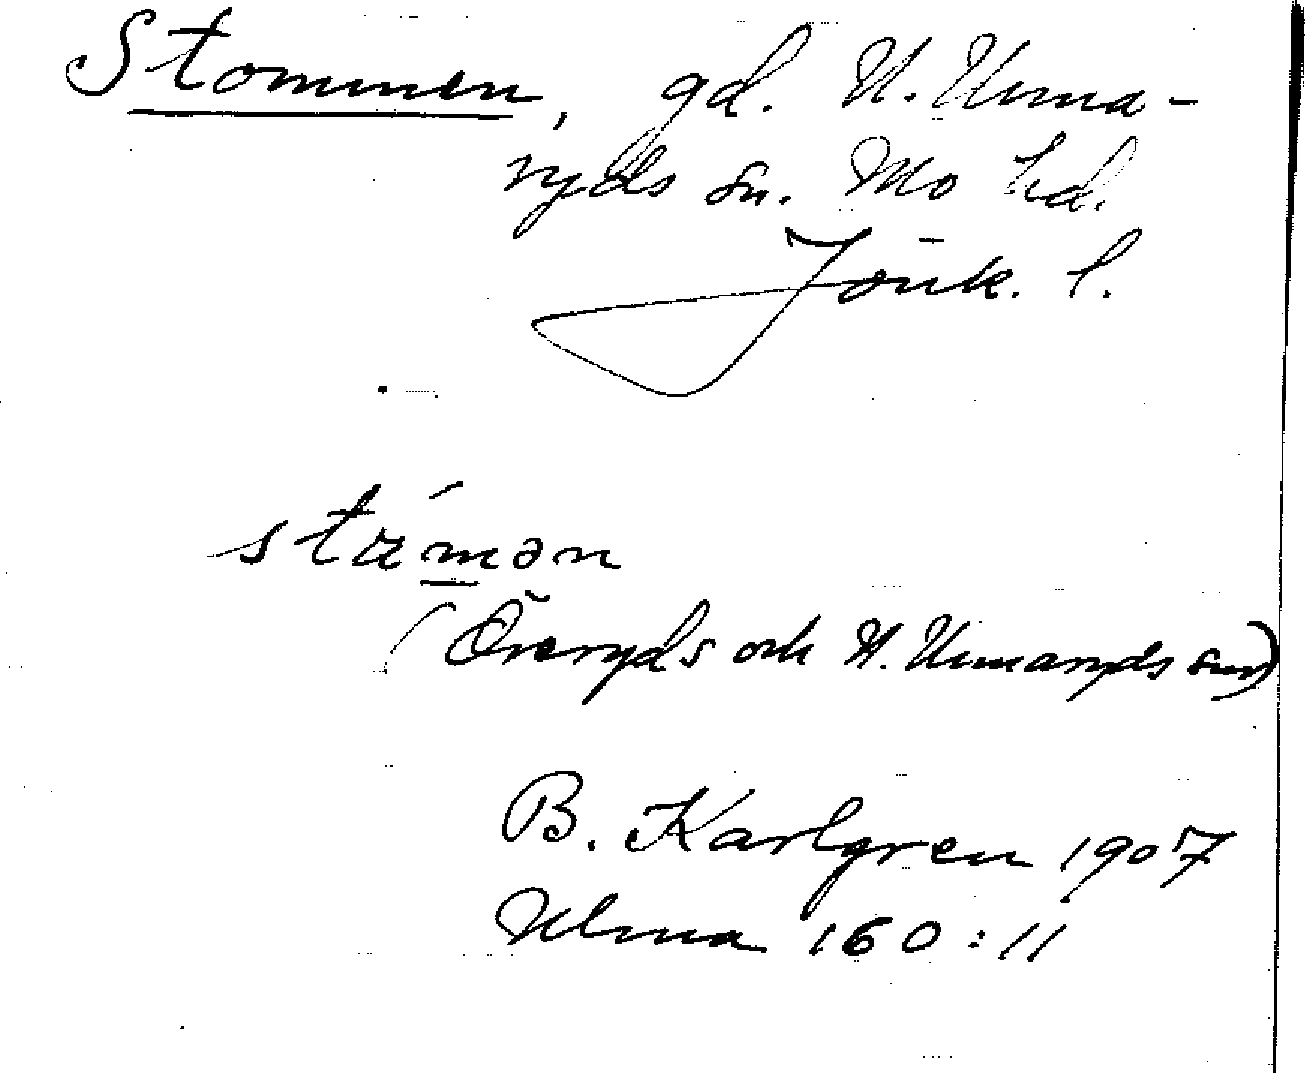 Stommen, gd. N. Unna-
ryds sn. Mo hd.
Jönk. l.
(Öreryds och N. Unnaryds snr)
B. Karlgren 1907
Ulma 160:11